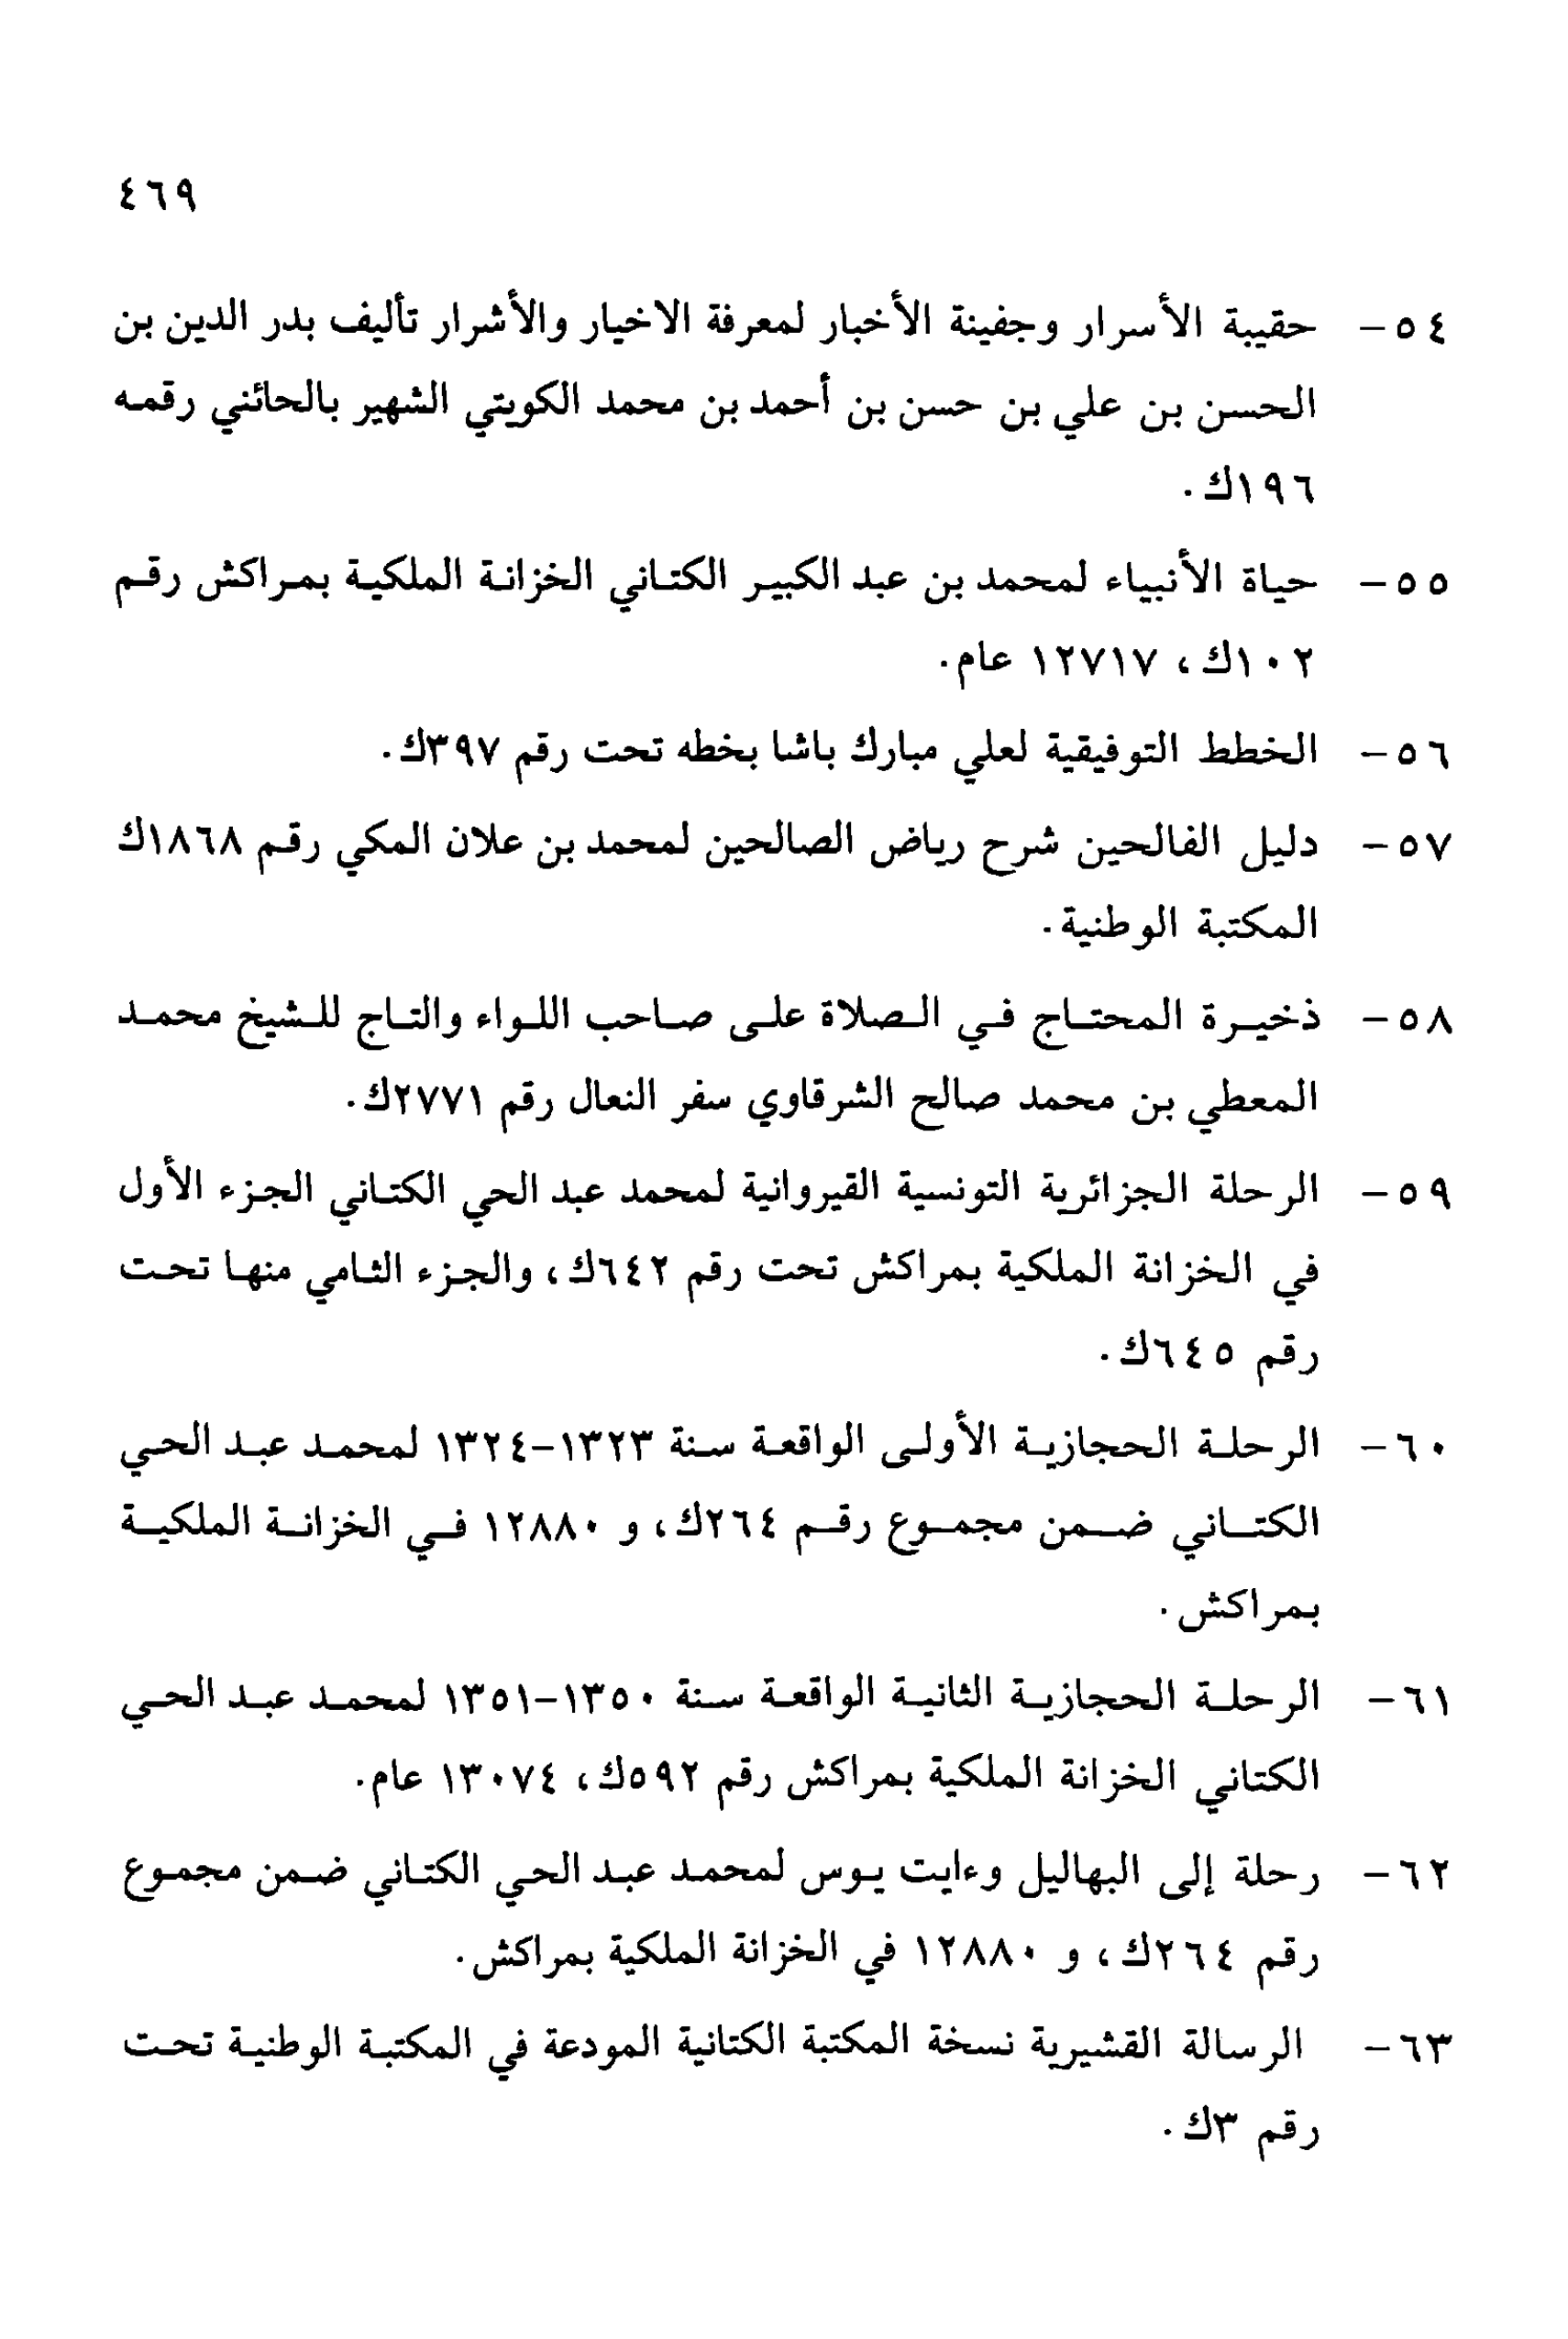 ٤٦٩
٥٤- حقيبة الأسرار وجفينة الأخبار لمعرفة الاخيار والأشرار تأليف بدر الدين بن
الحسن بن علي بن حسن بن أحمد بن محمد الكويتي الشهير بالحائني رقمه
١٩٦ك.
٥٥- حياة الأنبياء لمحمد بن عبد الكبير الكتاني الخزانة الملكية بمراكش رقم
١٠٢ك، ١٢٧١٧ عام.
٥٦- الخطط التوفيقية لعلي مبارك باشا بخطه تحت رقم ٣٩٧ك.
٥٧- دليل الفالحين شرح رياض الصالحين لمحمد بن علان المكي رقم ١٨٦٨ك
المكتبة الوطنية.
٥٨- ذخيرة المحتاج في الصلاة على صاحب اللواء والتاج للشيخ محمد
المعطي بن محمد صالح الشرقاوي سفر النعال رقم ٢٧٧١ك.
٥٩- الرحلة الجزائرية التونسية القيروانية لمحمد عبد الحي الكتاني الجزء الأول
في الخزانة الملكية بمراكش تحت رقم ٦٤٢ك، والجزء الثامي منها تحت
رقم ٦٤٥ك.
٦٠- الرحلة الحجازية الأولى الواقعة سنة ١٣٢٣-١٣٢٤ لمحمد عبد الحي
الكتاني ضمن مجموع رقم ٢٦٤ك، و ١٢٨٨٠ في الخزانة الملكية
بمراكش.
٦١- الرحلة الحجازية الثانية الواقعة سنة ١٣٥٠-١٣٥١ لمحمد عبد الحي
الكتاني الخزانة الملكية بمراكش رقم ٥٩٢ك، ١٣٠٧٤ عام.
٦٢- رحلة إلى البهاليل وءايت يوس لمحمد عبد الحي الكتاني ضمن مجموع
رقم ٢٦٤ك، و ١٢٨٨٠ في الخزانة الملكية بمراكش.
٦٣- الرسالة القشيرية نسخة المكتبة الكتانية المودعة في المكتبة الوطنية تحت
رقم ٣ك.